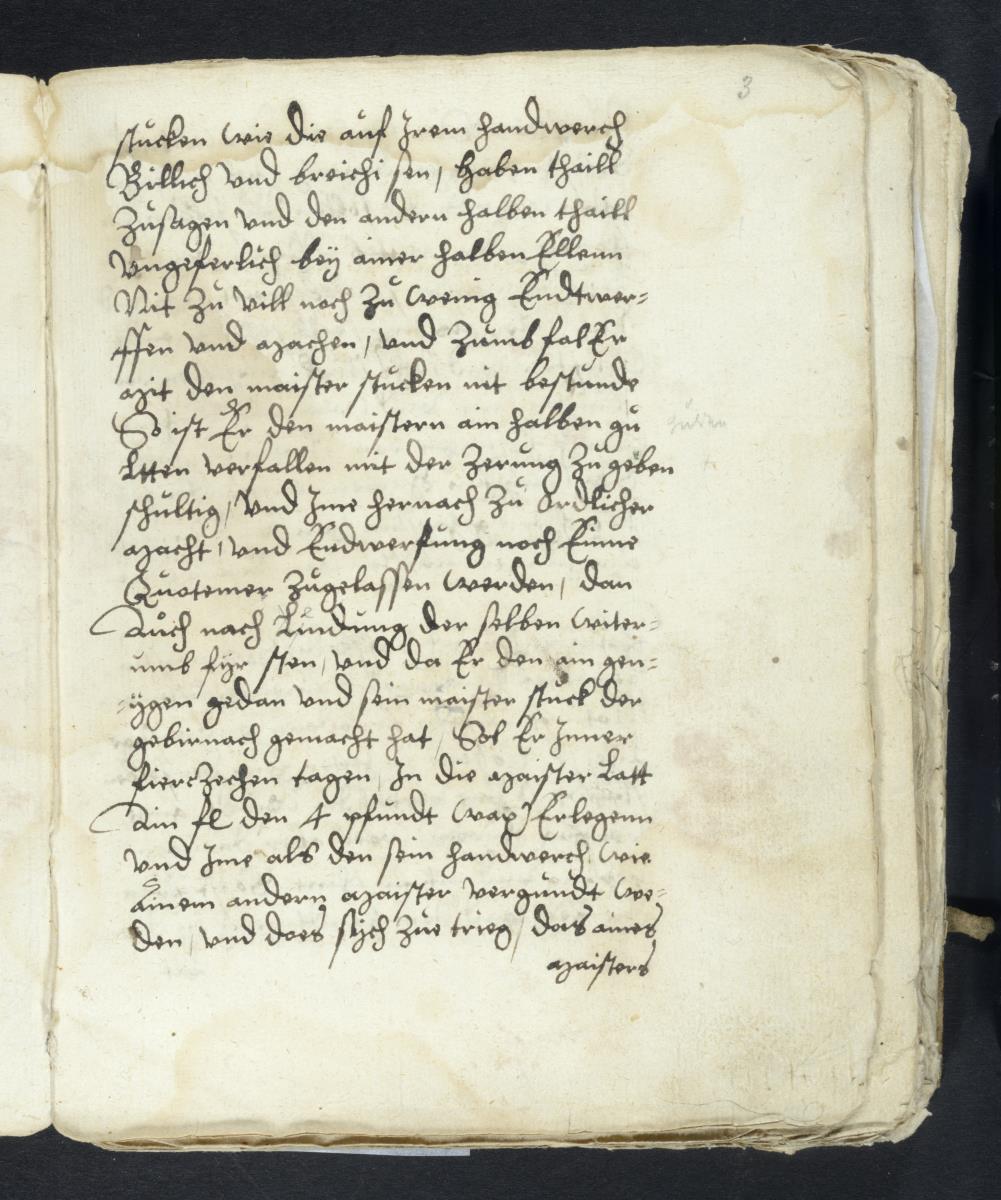 3
stucken wie die auf Irem handwerch
Billich vnd breichi sen, haben thaill
Zusagen vnd den andern halben thaill
Vngeferlich beÿ ainer halben Ellenn
Nit zu vill noch zu wenig Endtwer=
ffen vnd machen, vnd zumb fal Er
mit den maister stucken nit bestunde
So ist Er den maistern ain halben gu
ltten verfallen mit der Zerung zu geben
schultig, vnd Ime hernach zu ordlicher
macht, vnd Endwerfung noch Einne
Quotemer zugelassen werden, dan
Auch nach Endung der selben witer=
umb fyr sten, vnd da Er den ain gen=
=ygen gedan vnd sein maister stuck der
gebirnach gemacht hat, Sol Er Inner
fierczechen tagen, In die maister Latt
Ain fl den 4 pfundt wax Erlegenn
vnd Ime als den sein handwerch, wie
Ainem andern maister vergundt we=
den, vnd does sych zue trieg, das aines
maisters
gulden